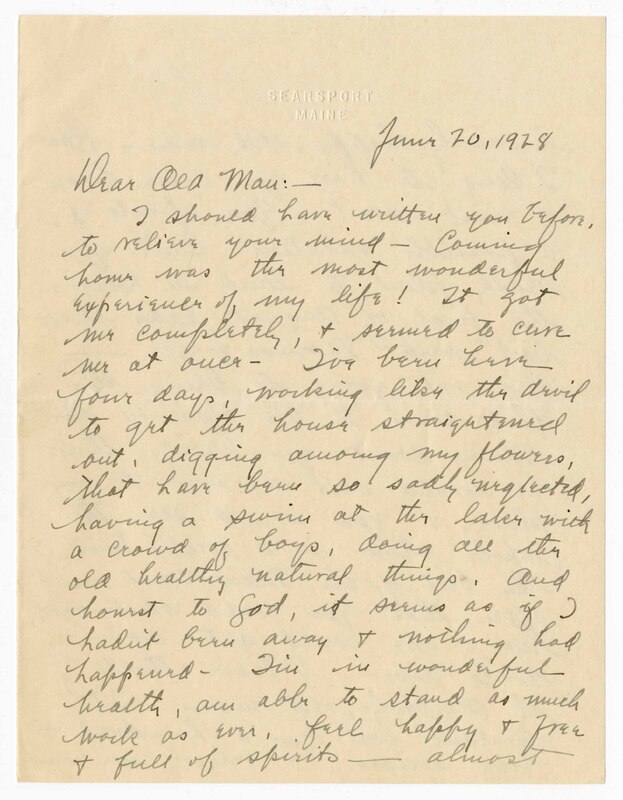 SEARSPORT
MAINE
June 20, 1928
Dear Old Man:—
I should have written you before,
to relieve your mind — Coming
home was the most wonderful
experience of my life! It got
me completely, & seemed to cure
me at once — I've been here
four days, working like the devil
to get the house straightened
out, digging among my flowers,
that have been so sadly neglected,
having a swim at the lake with
a crowd of boys, doing all the
old healthy natural things. And
honest to God, it seems as if I
hadn't been away & nothing had
happened — I'm in wonderful
health, am able to stand as much
work as ever, feel happy & free
& full of spirits — almost